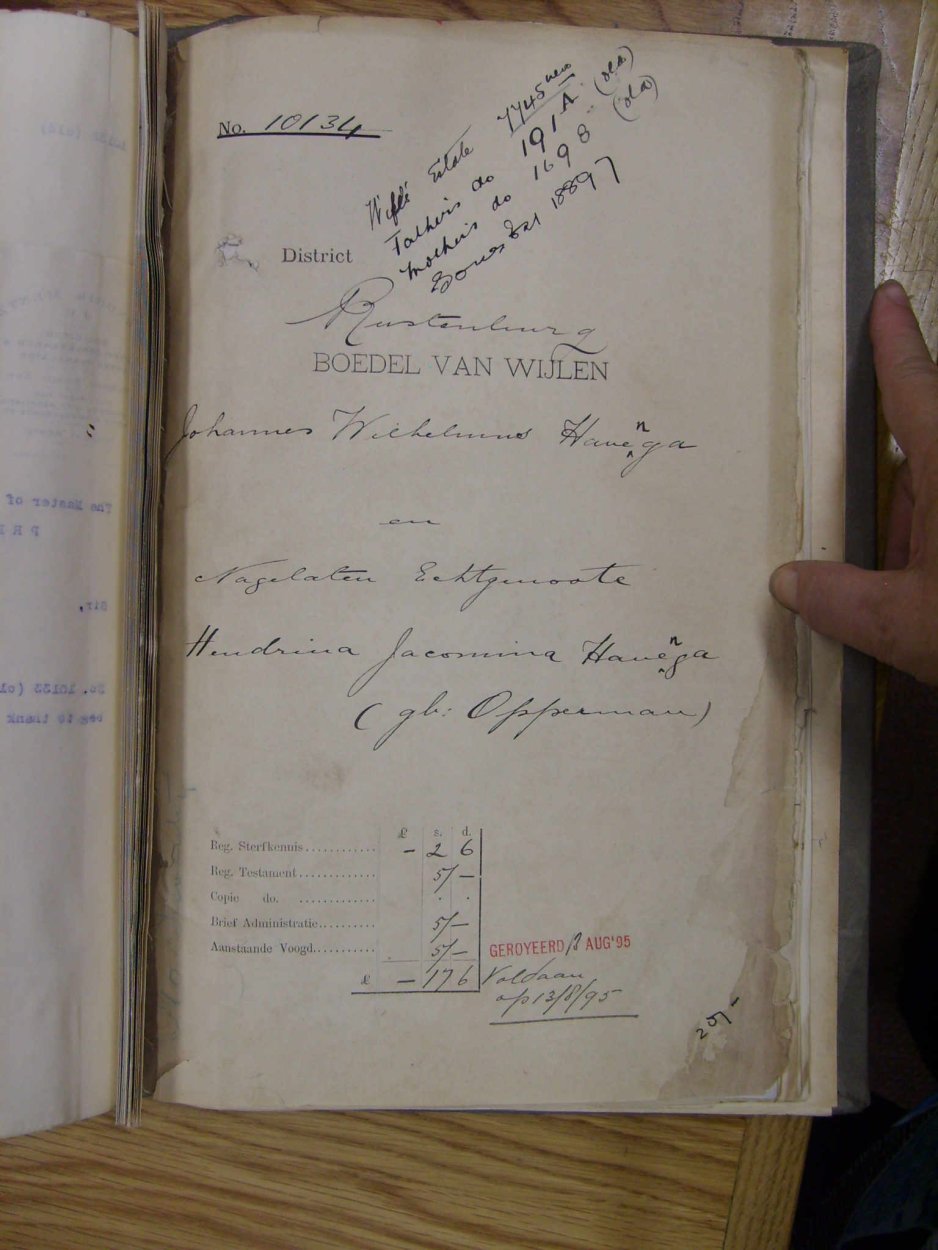 No. 10134
Wife's Estate 7745 new
Father's do 191 A. (old)
Mother's do 1698 (old)
18897
District
Rustenburg
BOEDEL VAN WIJLEN
Johannes Wilhelmus Havenga
en
Nagelaten Echtgenoote
Hendrina Jacomina Havenga
(gb: Opperman)
£ s. d.
Reg. Sterfkennis............ – 2 6
Reg. Testament............. 5/–
Copie do. ............. . .
Brief Administratie.......... 5/–
Aanstaande Voogd.......... 5/–
£ – 17 6
GEROYEERD 13 AUG '95
Voldaan
op 13/8/95
25/-
The Master of
Sir,
No. 10133 (old)
beg to thank